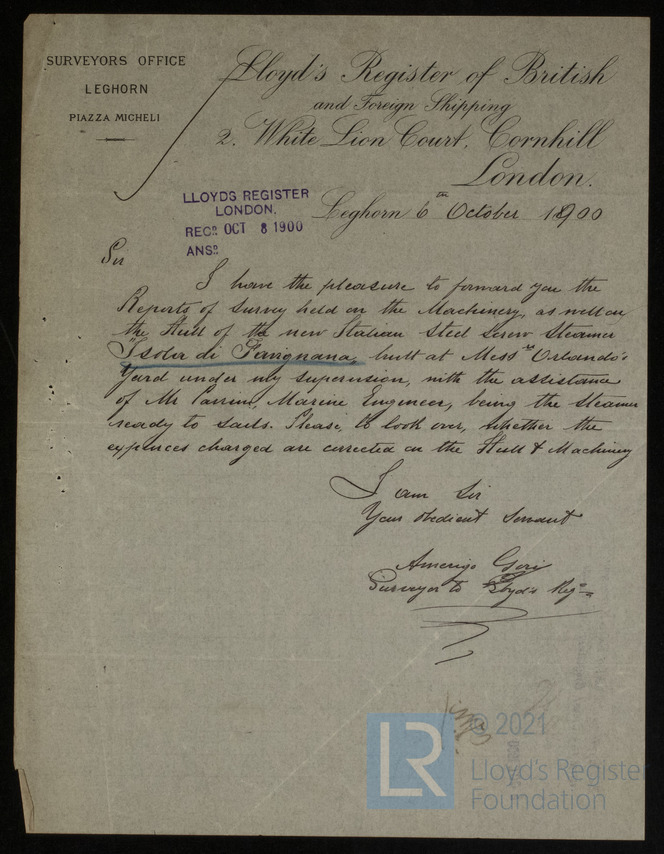 SURVEYORS OFFICE
LEGHORN
PIAZZA MICHELI
Lloyd's Register of British
and Foreign Shipping
2. White Lion Court, Cornhill
London.
LLOYDS REGISTER
LONDON.
RECD. OCT 8 1900
ANSD.
Leghorn 6th October 1900
Sir
I have the pleasure to forward you the
Reports of Survey held on the Machinery, as well on
the Hull of the new Italian Steel Screw Steamer
"Isola di Favignana, built at Messrs Orlando's
Yard under my supervision, with the assistance
of Mr Marine Engineer, being the Steamer
ready to sails. Please, to look over, whether the
expences charged are corrected on the Hull & Machinery
I am Sir
Your obedient Servant
Amerigo Gori
Surveyor to Lloyd's Reg
© 2021
LR
Lloyd's Register
Foundation